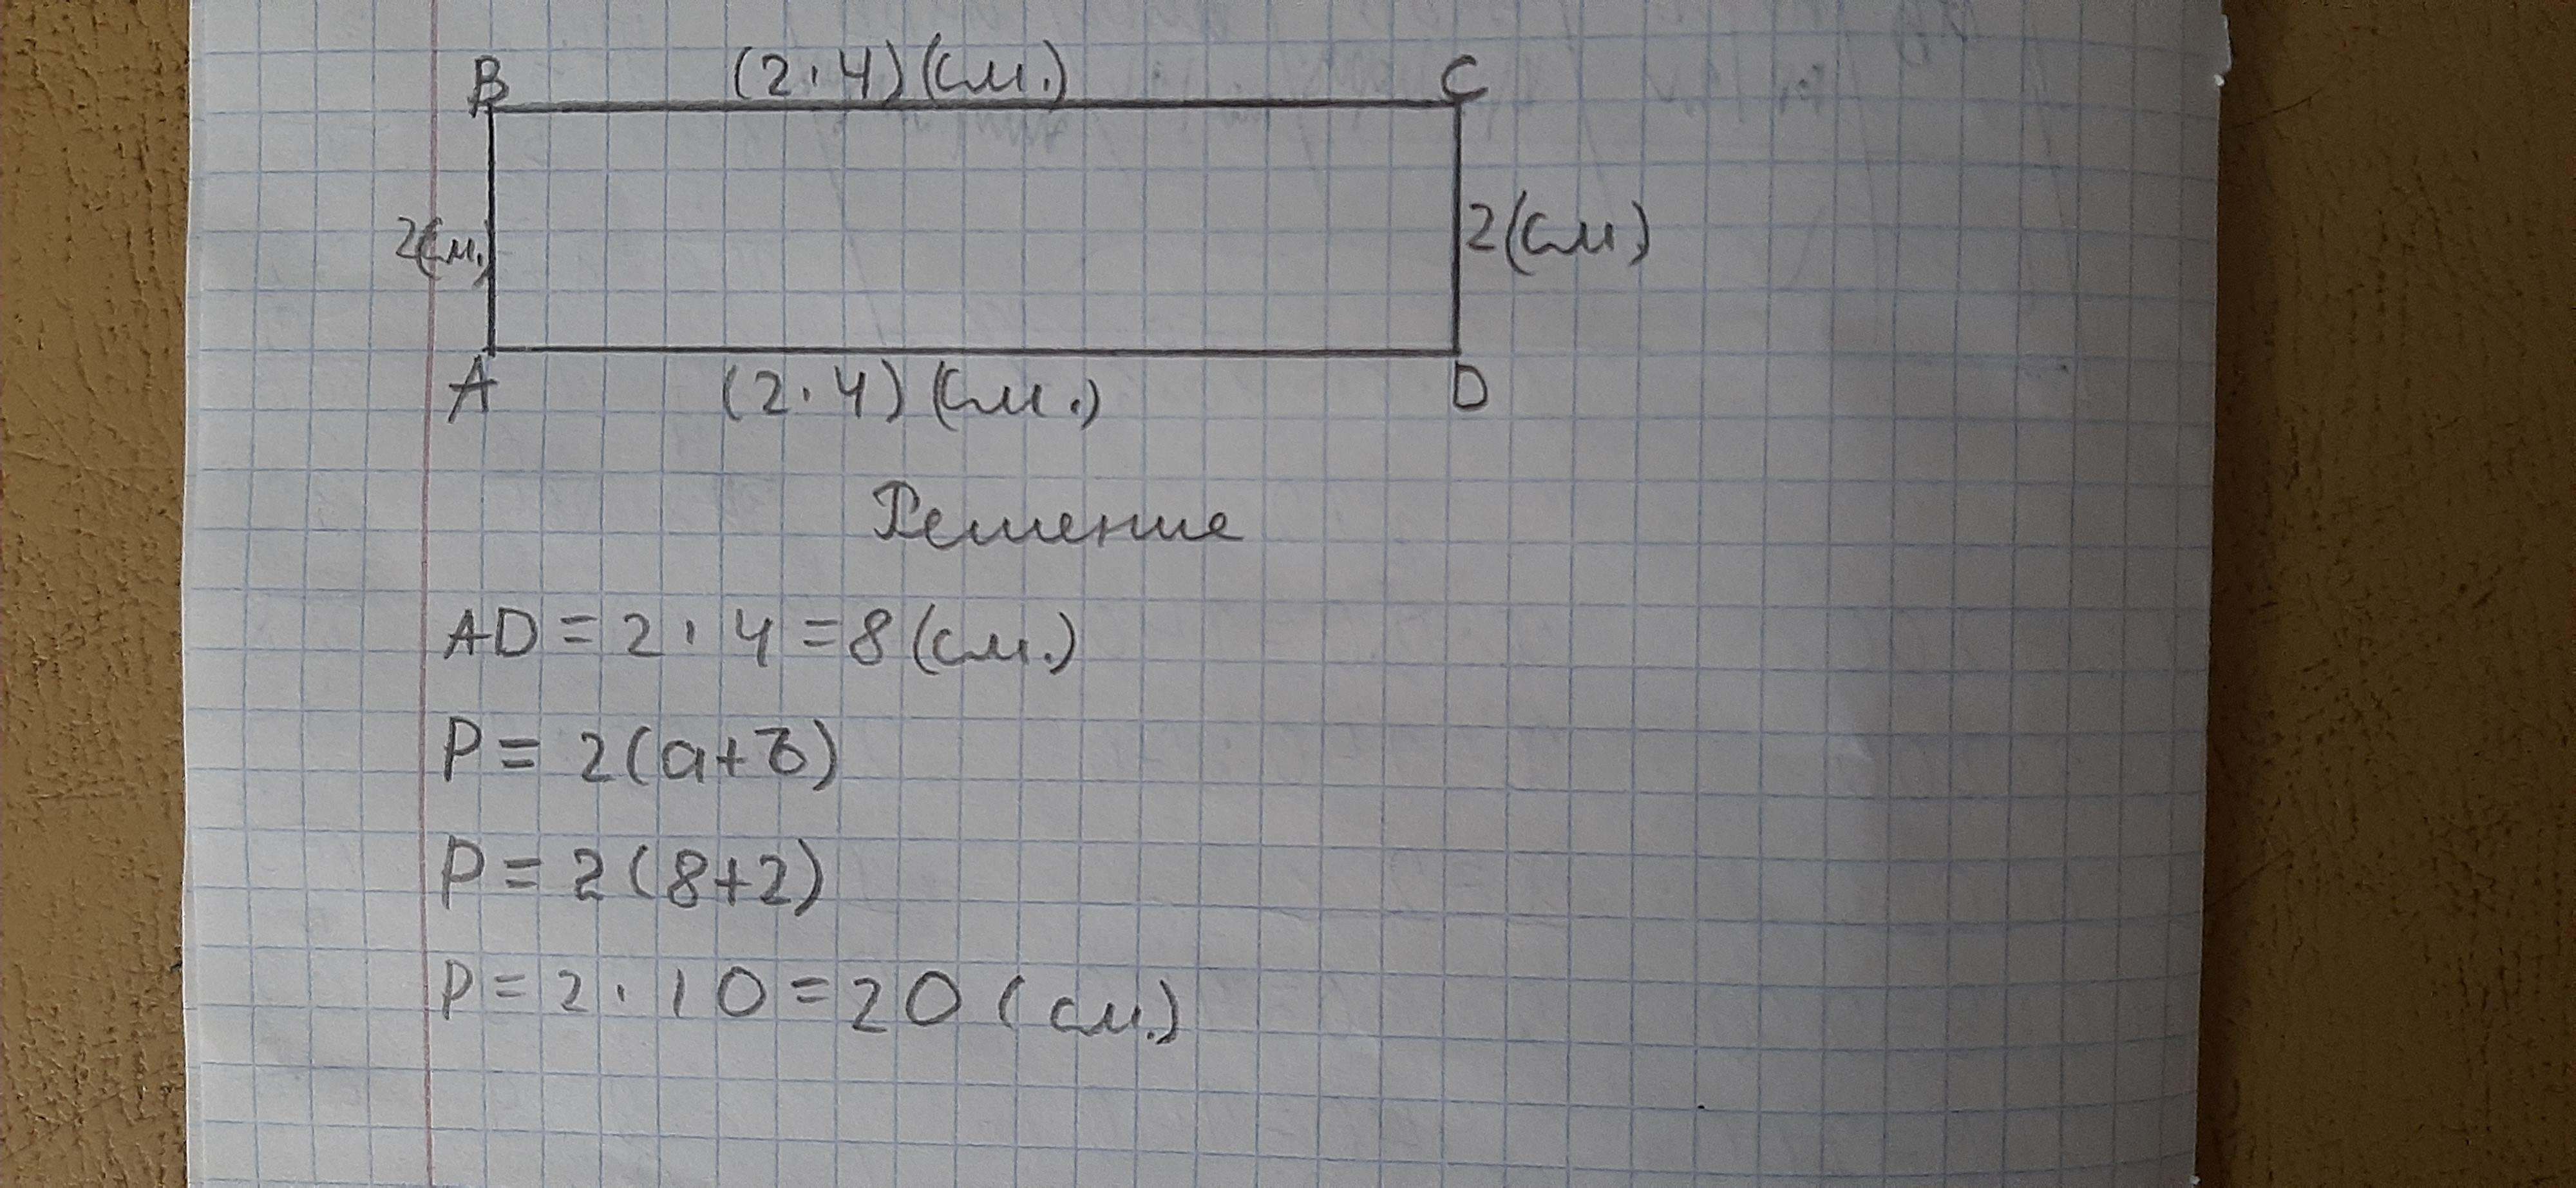 B (2·4)(см.) C
2(см.) 2(см)
A (2·4)(см.) D
Решение
AD = 2 · 4 = 8 (см.)
P = 2(a+b)
P = 2(8+2)
P = 2 · 10 = 20 (см.)